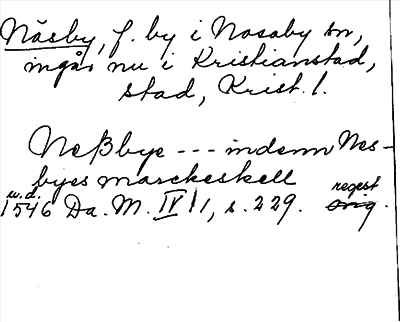 Näsby, f. by i Nosaby sn,
ingår nu i Kristianstad,
stad, Krist. l.
Neßbye --- indenn Nes-
byes marckeskell
u.d. regest
1546 Da. M. IV 1, s. 229. orig.